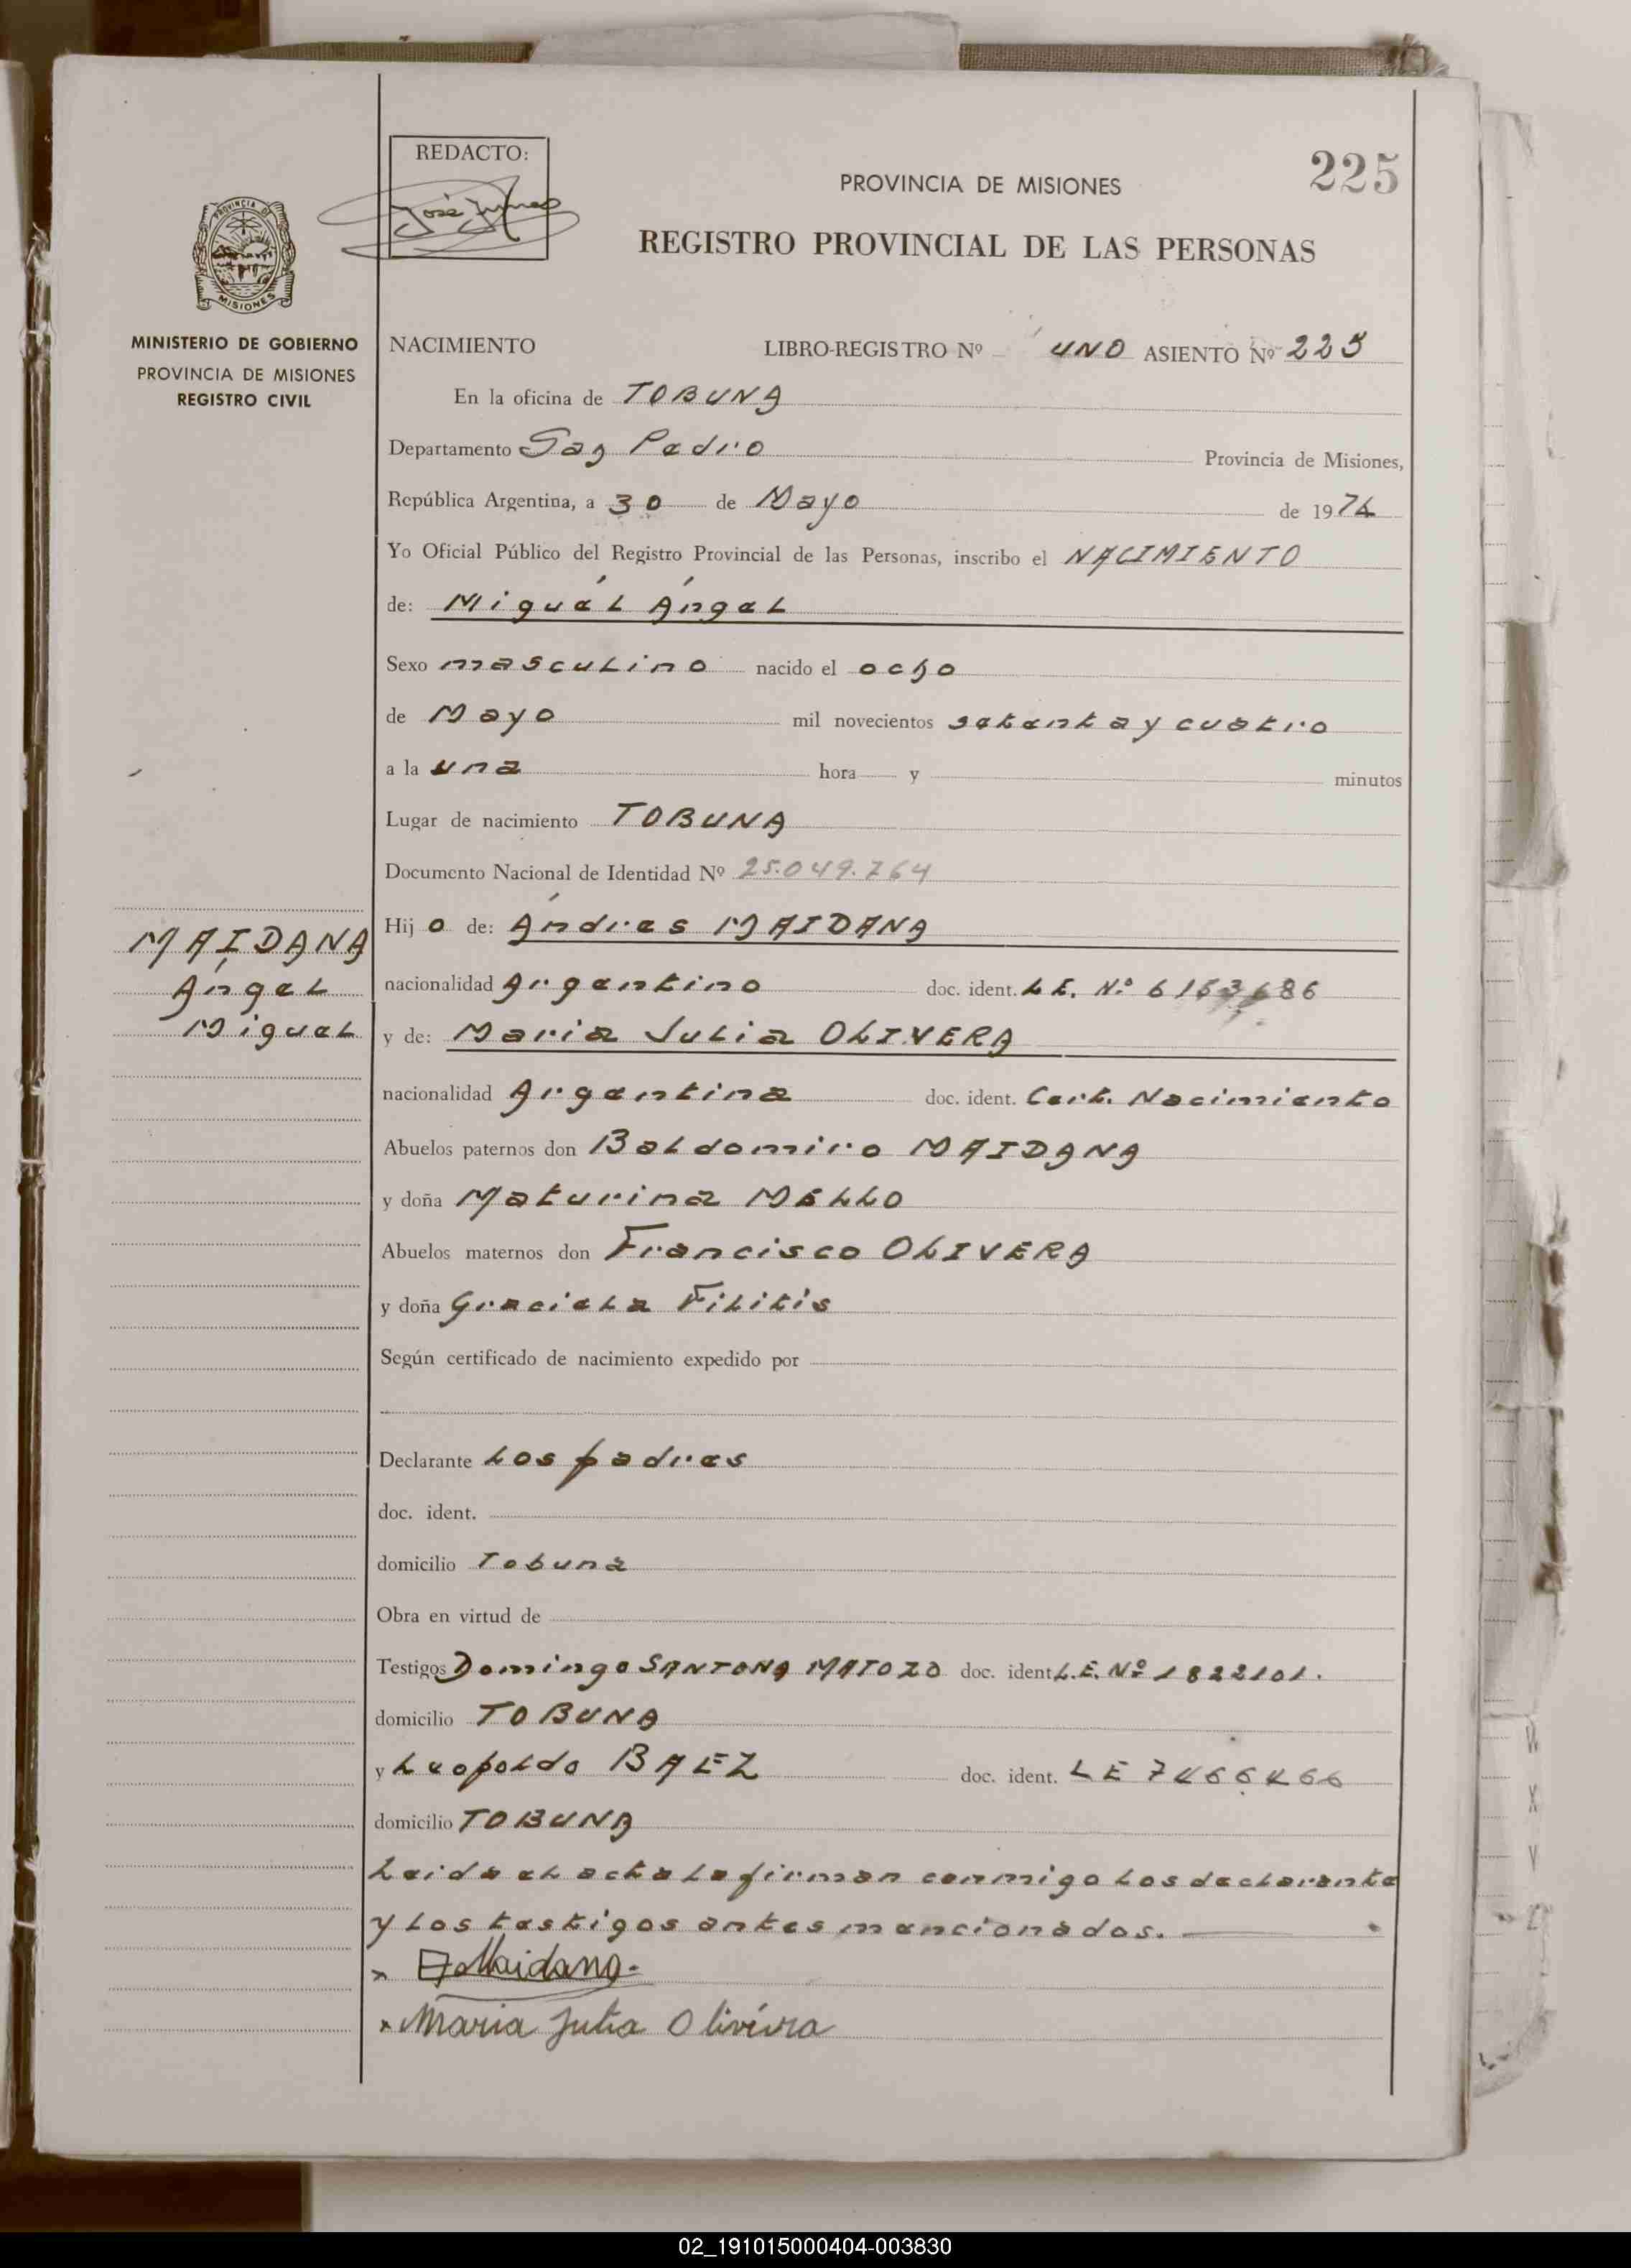 REDACTO:
225
PROVINCIA DE MISIONES
REGISTRO PROVINCIAL DE LAS PERSONAS
PROVINCIA DE
MISIONES
MINISTERIO DE GOBIERNO
PROVINCIA DE MISIONES
REGISTRO CIVIL
NACIMIENTO LIBRO-REGISTRO Nº UNO ASIENTO Nº 225
En la oficina de TOBUNA
Departamento San Pedro Provincia de Misiones,
República Argentina, a 30 de Mayo de 1974
Yo Oficial Público del Registro Provincial de las Personas, inscribo el NACIMIENTO
de: Miguel Ángel
Sexo masculino nacido el ocho
de Mayo mil novecientos setenta y cuatro
a la una hora y minutos
Lugar de nacimiento TOBUNA
Documento Nacional de Identidad Nº 25.049.764
Hijo de: Ándres MAIDANA
MAIDANA
Ángel
Miguel
nacionalidad Argentino doc. ident. LE. Nº
y de: Maria Julia OLIVERA
nacionalidad Argentina doc. ident. Cert. Nacimiento
Abuelos paternos don Baldomiro MAIDANA
y doña Maturina MELLO
Abuelos maternos don Francisco OLIVERA
y doña Graciela Filitis
Según certificado de nacimiento expedido por
Declarante Los padres
doc. ident.
domicilio Tobuna
Obra en virtud de
Testigos Domingo SANTONA MATOZO doc. ident L.E. Nº 1822101.
domicilio TOBUNA
y Leopoldo BAEZ doc. ident. LE 7466466
domicilio TOBUNA
Leida el acta la firman conmigo los declarante
y los testigos antes mencionados.
x Maidana
x Maria Julia Olivéira
02_191015000404-003830